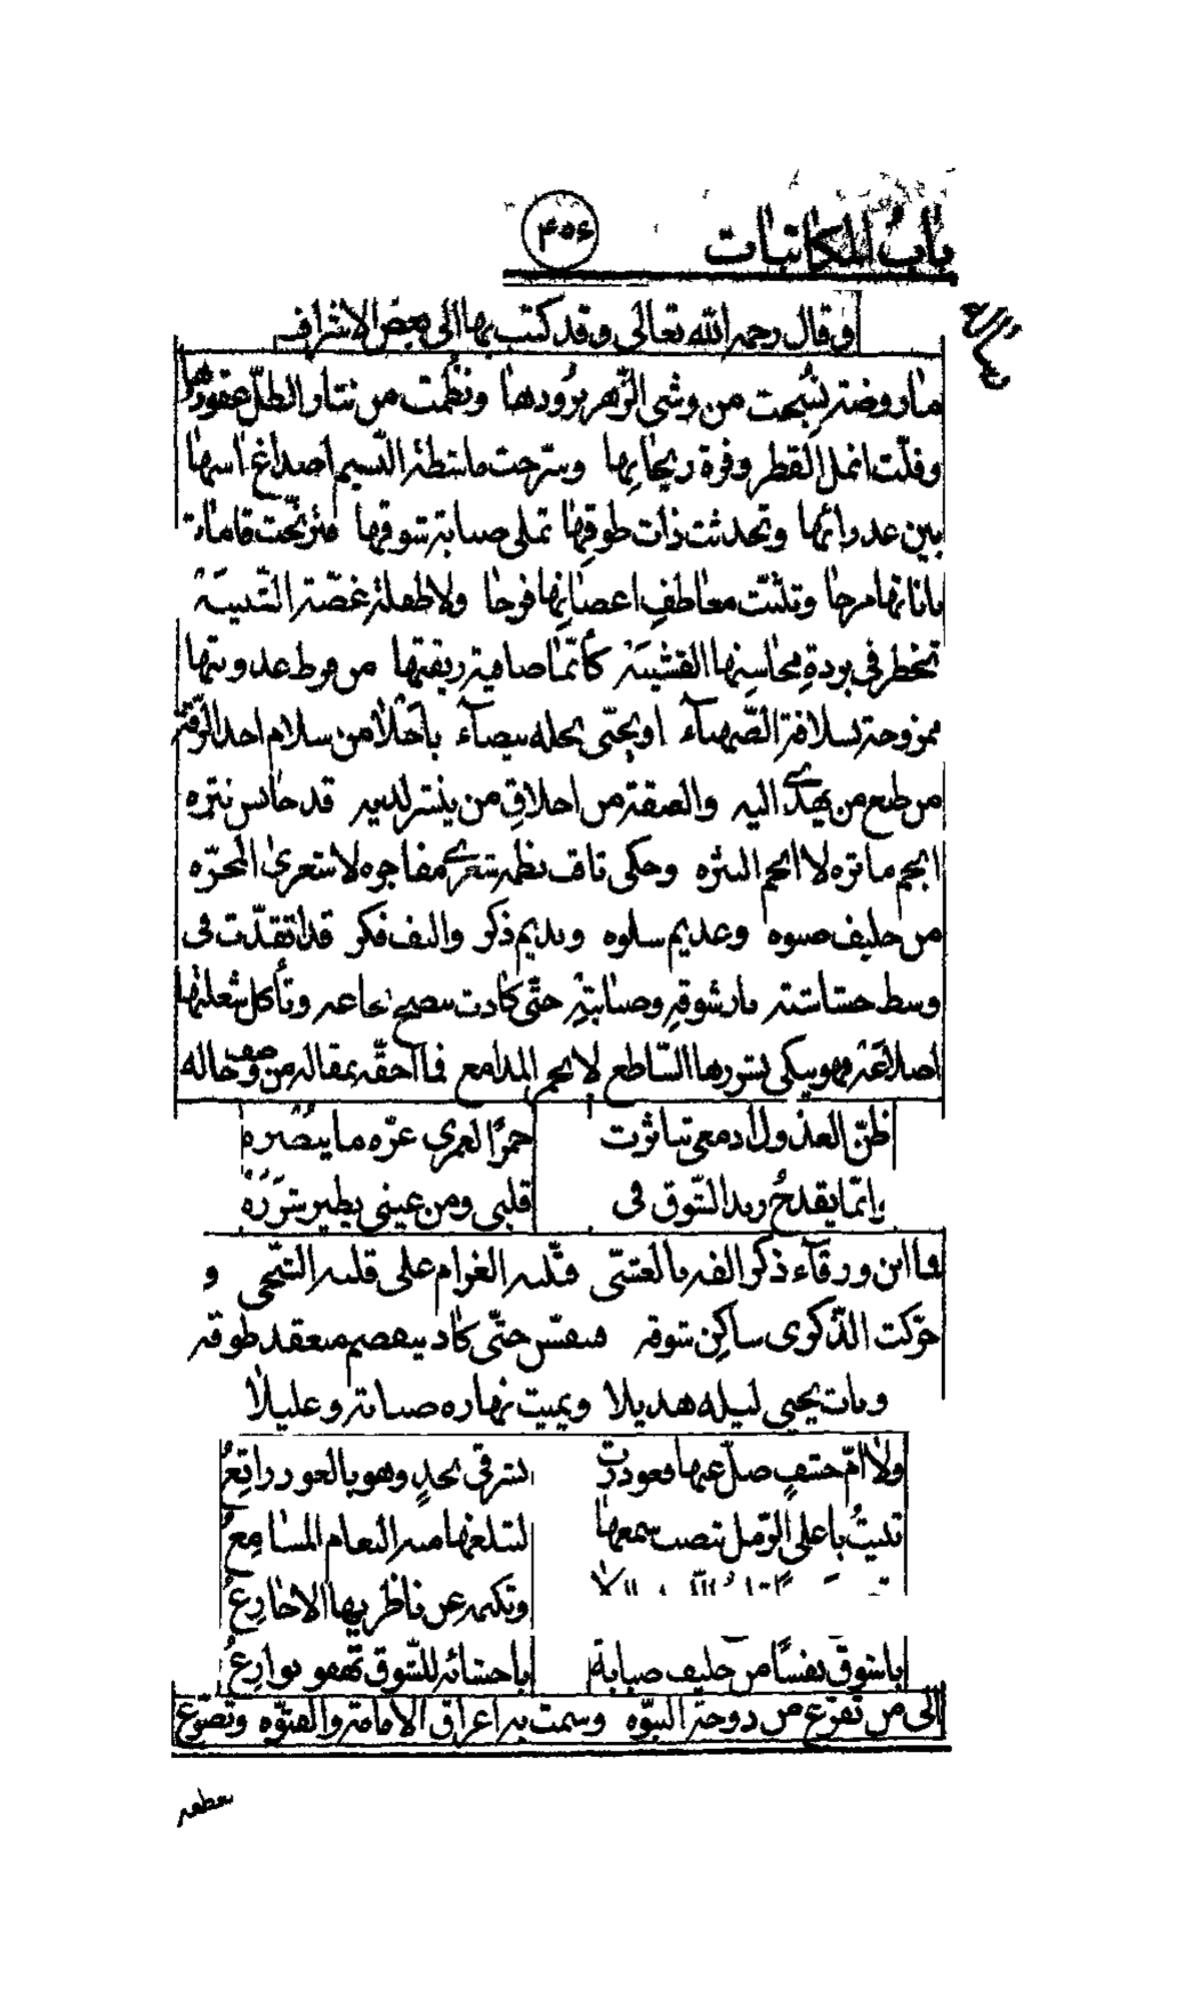 باب المكاتبات ٤٥٤
وقال رحمه الله تعالى وقد كتب بها الى بعض الاشراف
ما روضة نُسِجت من وشى الزّهر بُرُودها ونظّمت من نثار الطلّ عقودها
وفلّت انمل القطر وفرة ريحانها وسرّحت ماشطة النّسيم اصداغ اسها
بين عدوائها وتحدثت ذات طوقها تملى صبابة شوقها فترنّحت قامات
باناتها مرحا وتثنّت معاطف اغصانها فرحا ولا طفلة غضّة الشّبيبة
تخطر فى بردة محاسنها القشيبة كأنّما صافية ريقتها من فرط عذوبتها
ممزوجة بسلافة الصّهباء او بجنّى نحله بيضاء باحلا من سلام اخذ الرّقّة
من طبع من يهدى اليه والصفة من اخلاق من ينشر لديه قد جانس نثره
انجم مآثره لا انجم النثره وحكى نظمه شعرى مفاخره لا شعرى المجرّه
من حليف صبوه وعديم سلوه ونديم ذكر واليف فكر قد اتقدّت فى
وسط حشاشته نار شوقه وصبابته حتّى كادت وتأكل شعلتها
اضلاعه وهو يبكى بشررها السّاطع لا بجمر المدامع فما احقّه بمقالة من وصف حاله
ظنّ العذول ادمعى تناثرت حمرًا لعمرى غرّه ما يبصُره
وانّما يقدحُ زند الشّوق فى قلبى ومن عينى يطير شَرَرُهُ
فما ابن ورقآء ذكر الفه بالعشىّ فنبّه الغرام على قلبه الشّجى و
حرّكت الذّكرى ساكن شوقه فتنفّس حتّى كاد يفصم معقد طوقه
وبات يحيى ليله هديلا ويميت نهاره صبابة وعليلا
ولا امّ خشفٍ ضلّ عنها فغودرت بشرقى نجدٍ وهو بالغور راتعُ
تبيتُ باعلى الرّمل تنصب سمعها لتبلغها منه البغام المسامعُ
وتكنمه عن ناظريها الاجارعُ
باشوق نفسًا من حليف صبابة باحشائه للشّوق تهفو نوازعُ
الى من تفرّع من دوحة النبوّه وسمت به اعراق الامامة والفتوّه وتضوّع